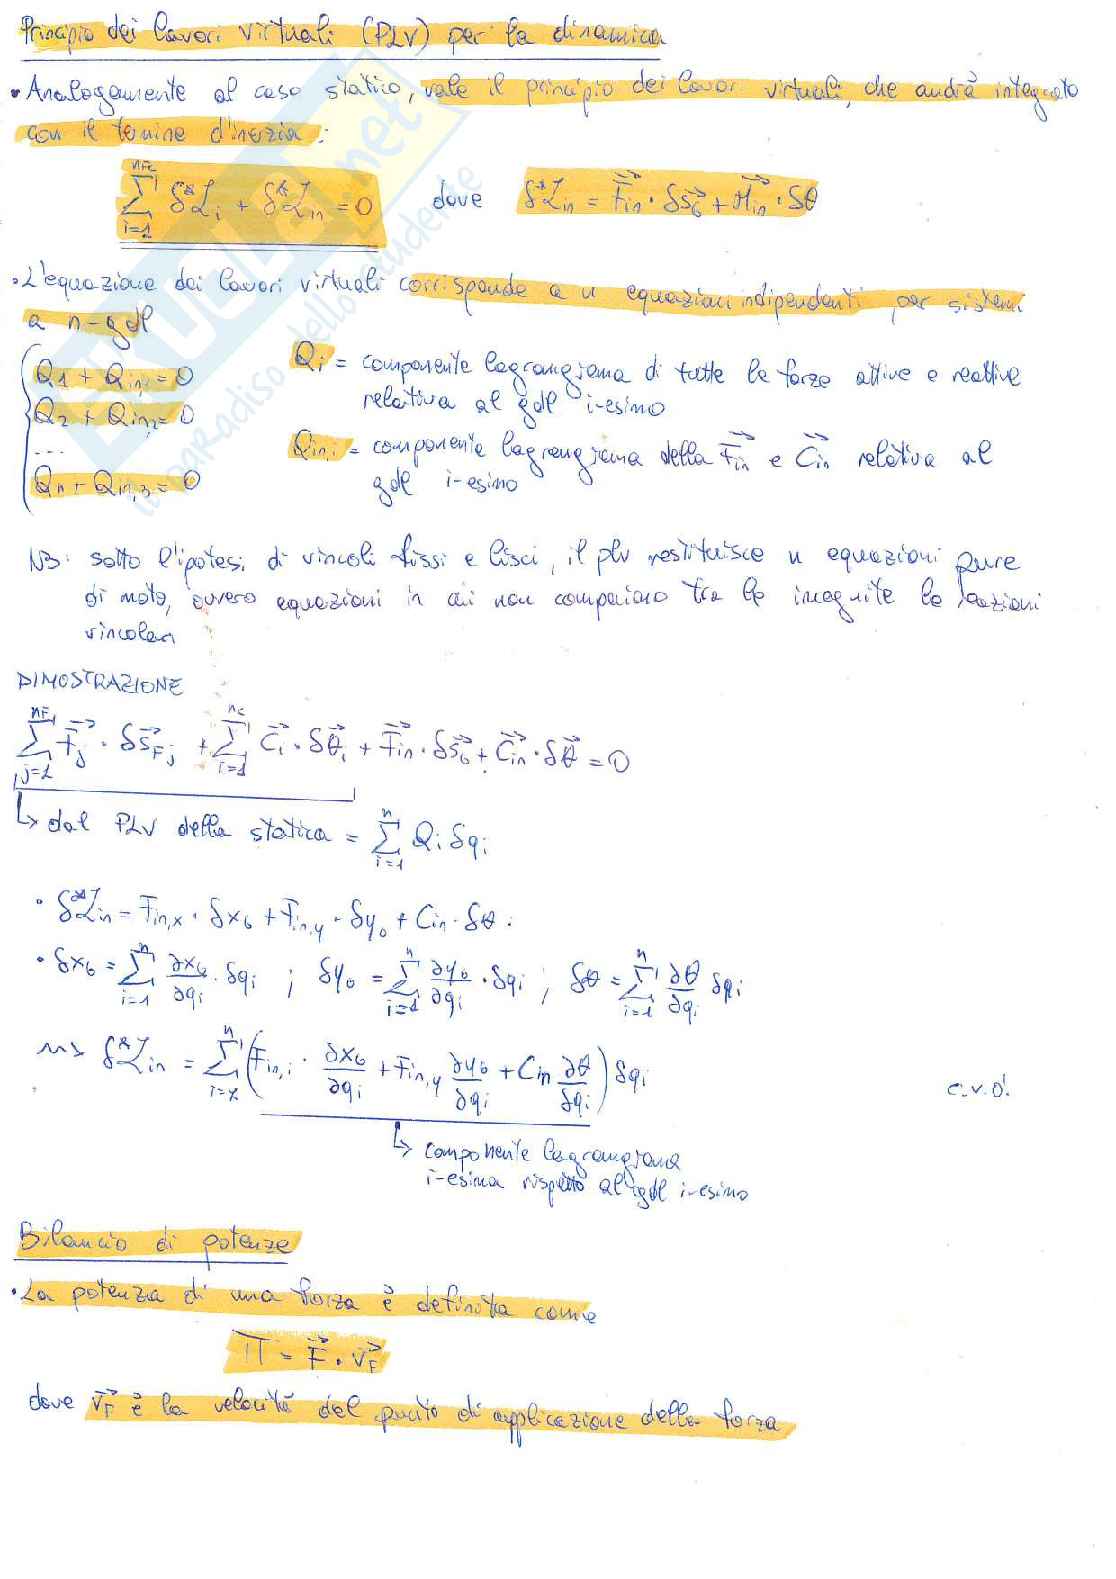 Principio dei lavori virtuali (PLV) per la dinamica
• Analogamente al caso statico, vale il principio dei lavori virtuali, che andrà integrato
con il termine d'inerzia:
nFe ∑ i=1 δ*L_i + δ*L_in = 0 dove δ*L_in = F⃗_in · δs⃗_G + M⃗_in · δθ
• L'equazione dei lavori virtuali corrisponde a n equazioni indipendenti per sistemi
a n-gdl
Q1 + Qin,1 = 0
Q2 + Qin,2 = 0
...
Qn + Qin,n = 0
Qi = componente lagrangiana di tutte le forze attive e reattive
relativa al gdl i-esimo
Qin,i = componente lagrangiana della F⃗in e C⃗in relativa al
gdl i-esimo
NB: sotto l'ipotesi di vincoli fissi e lisci, il plv restituisce n equazioni pure
di moto, ovvero equazioni in cui non compaiono tra le incognite le reazioni
vincolari
DIMOSTRAZIONE
nF ∑ j=1 F⃗_j · δs⃗_Fj + nc ∑ i=1 C⃗_i · δθ⃗_i + F⃗_in · δs⃗_G + C⃗_in · δθ⃗ = 0
↳ dal PLV della statica = n ∑ i=1 Qi δqi
• δ*L_in = F_in,x · δx_G + F_in,y · δy_G + C_in · δθ.
• δx_G = n ∑ i=1 ∂x_G/∂qi · δqi ; δy_G = n ∑ i=1 ∂y_G/∂qi · δqi ; δθ = n ∑ i=1 ∂θ/∂qi δqi
⇝ δ*L_in = n ∑ i=1 (F_in,i · ∂x_G/∂qi + F_in,y ∂y_G/∂qi + C_in ∂θ/∂qi) δqi
c.v.d!
↳ componente lagrangiana
i-esima rispetto al gdl i-esimo
Bilancio di potenze
• La potenza di una forza è definita come
Π = F⃗ · v⃗_F
dove v⃗_F è la velocità del punto di applicazione della forza
SKUOLA.net
il paradiso dello studente